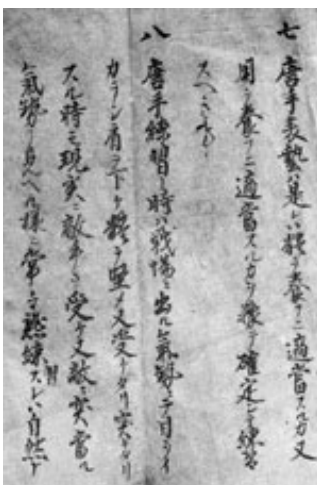 七 唐手表藝ハ是レハ體ヲ養フニ適當スルカ又
用ヲ養フニ適當スルカヲ豫テ確定シテ練習
スヘキ事
八 唐手練習ノ時ハ戰場ニ出ル氣勢ニテ目ヲイ
カラシ肩ヲ下ケ體ヲ堅メ又受ケタリ突キタリ
スル時モ現実ニ敵手ヲ受ケ又敵ニ突當ル
氣勢ノ見ヘル樣ニ常々練習スレハ自然ト